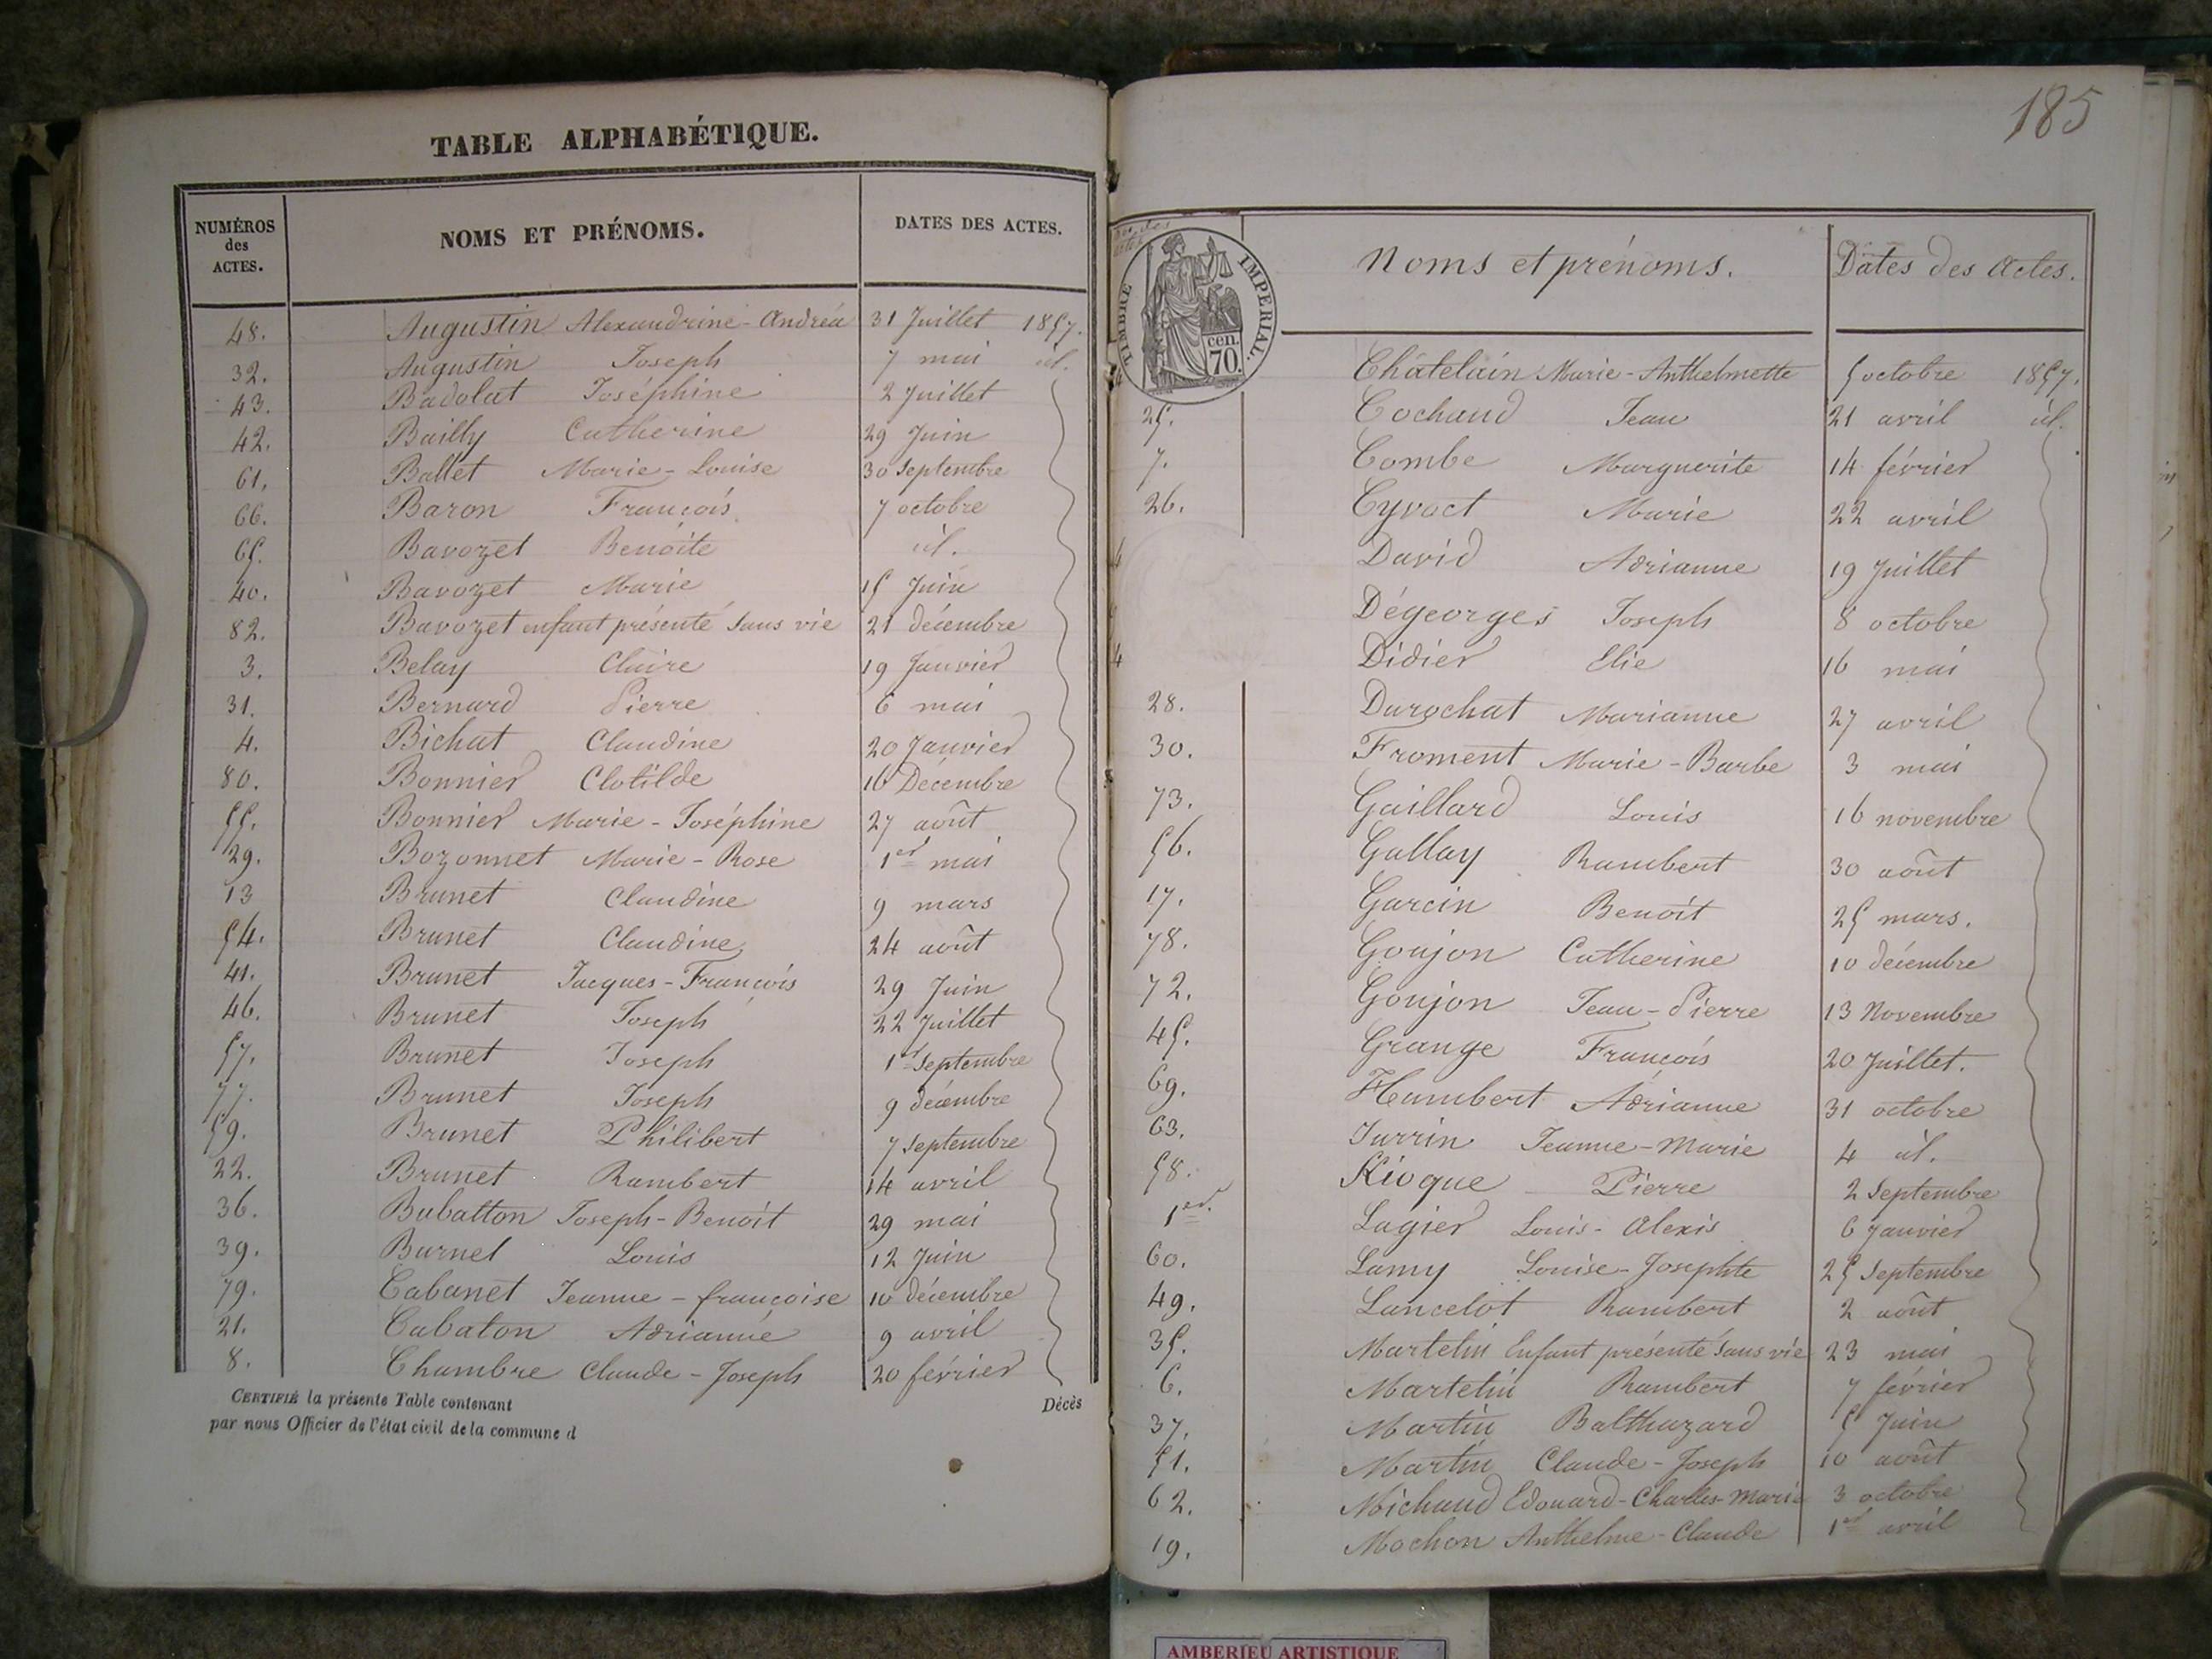 TABLE ALPHABÉTIQUE.
NUMÉROS des ACTES.
NOMS ET PRÉNOMS.
DATES DES ACTES.
48. Augustin Alexandrine-Andréa 31 Juillet 1857.
32. Augustin Joseph 7 mai id.
43. Badolat Joséphine 2 Juillet
42. Bailly Catherine 29 Juin
61. Ballet Marie-Louise 30 Septembre
66. Baron François 7 octobre
65. Bavozet Benoite id.
40. Bavozet Marie 15 Juin
82. Bavozet enfant présenté sans vie 21 décembre
3. Belay Claire 19 Janvier
31. Bernard Pierre 6 mai
4. Bichat Claudine 20 Janvier
80. Bonnier Clotilde 16 Décembre
55. Bonnier Marie-Joséphine 27 août
29. Bozonnet Marie-Rose 1er mai
13 Brunet Claudine 9 mars
54. Brunet Claudine 24 août
41. Brunet Jacques-François 29 Juin
46. Brunet Joseph 22 Juillet
57. Brunet Joseph 1er Septembre
77. Brunet Joseph 9 décembre
59. Brunet Philibert 7 Septembre
22. Brunet Rambert 14 avril
36. Bubatton Joseph-Benoit 29 mai
39. Burnel Louis 12 Juin
79. Cabanet Jeanne-françoise 10 décembre
21. Cabaton Adrianne 9 avril
8. Chambre Claude-Joseph 20 février
CERTIFIÉ la présente Table contenant Décès
par nous Officier de l'état civil de la commune d
185
Nos des actes
TIMBRE IMPERIAL.
cen.
70.
Noms et prénoms.
Dates des Actes.
Châtelain Marie-Anthelmette 5 octobre 1857.
25. Cochand Jean 21 avril id.
7. Combe Marguerite 14 février
26. Cyvoct Marie 22 avril
David Adrianne 19 Juillet
Dégeorges Joseph 8 octobre
Didier Elie 16 mai
28. Durochat Marianne 27 avril
30. Froment Marie-Barbe 3 mai
73. Gaillard Louis 16 novembre
56. Gallay Rambert 30 août
17. Garcin Benoit 25 mars.
78. Goujon Catherine 10 décembre
72. Goujon Jean-Pierre 13 Novembre
45. Grange François 20 Juillet.
69. Humbert Adrianne 31 octobre
63. Jurrin Jeanne-Marie 4 id.
58. Kioque Pierre 2 Septembre
1er. Lagier Louis-Alexis 6 Janvier
60. Lamy Louise-Josephte 25 Septembre
49. Lancelot Rambert 2 août
35. Martelin Enfant présenté sans vie 23 mai
6. Martelin Rambert 7 février
37. Martin Balthazard 5 Juin
51. Martin Claude-Joseph 10 août
62. Michaud Edouard-Charles-Marie 3 octobre
19. Mochon Anthelme-Claude 1er avril
AMBERIEU ARTISTIQUE